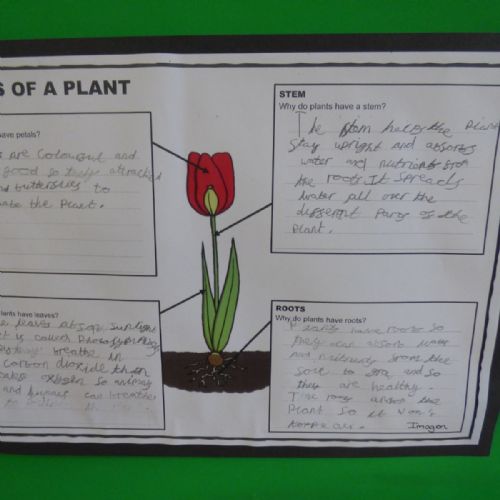 S OF A PLANT
have petals?
s are colourful and
good so they attracted
and butterflies to
ate the Plant.
STEM
Why do plants have a stem?
The stem helps the Plant
Stay upright and absorbs
water and nutrients from
the roots It spreads
water all over the
different Parts of the
Plant.
plants have leaves?
e leafs absorb sunlight
it is called
breathe in
carbon dioxide then
oxygen so animals
and humans can breathe
ROOTS
Why do plants have roots?
Plants have roots so
they can absorb water
and nutrients from the
soil to grow and so
they are healthy.
The roots anchor the
Plant so it won't
Imogen